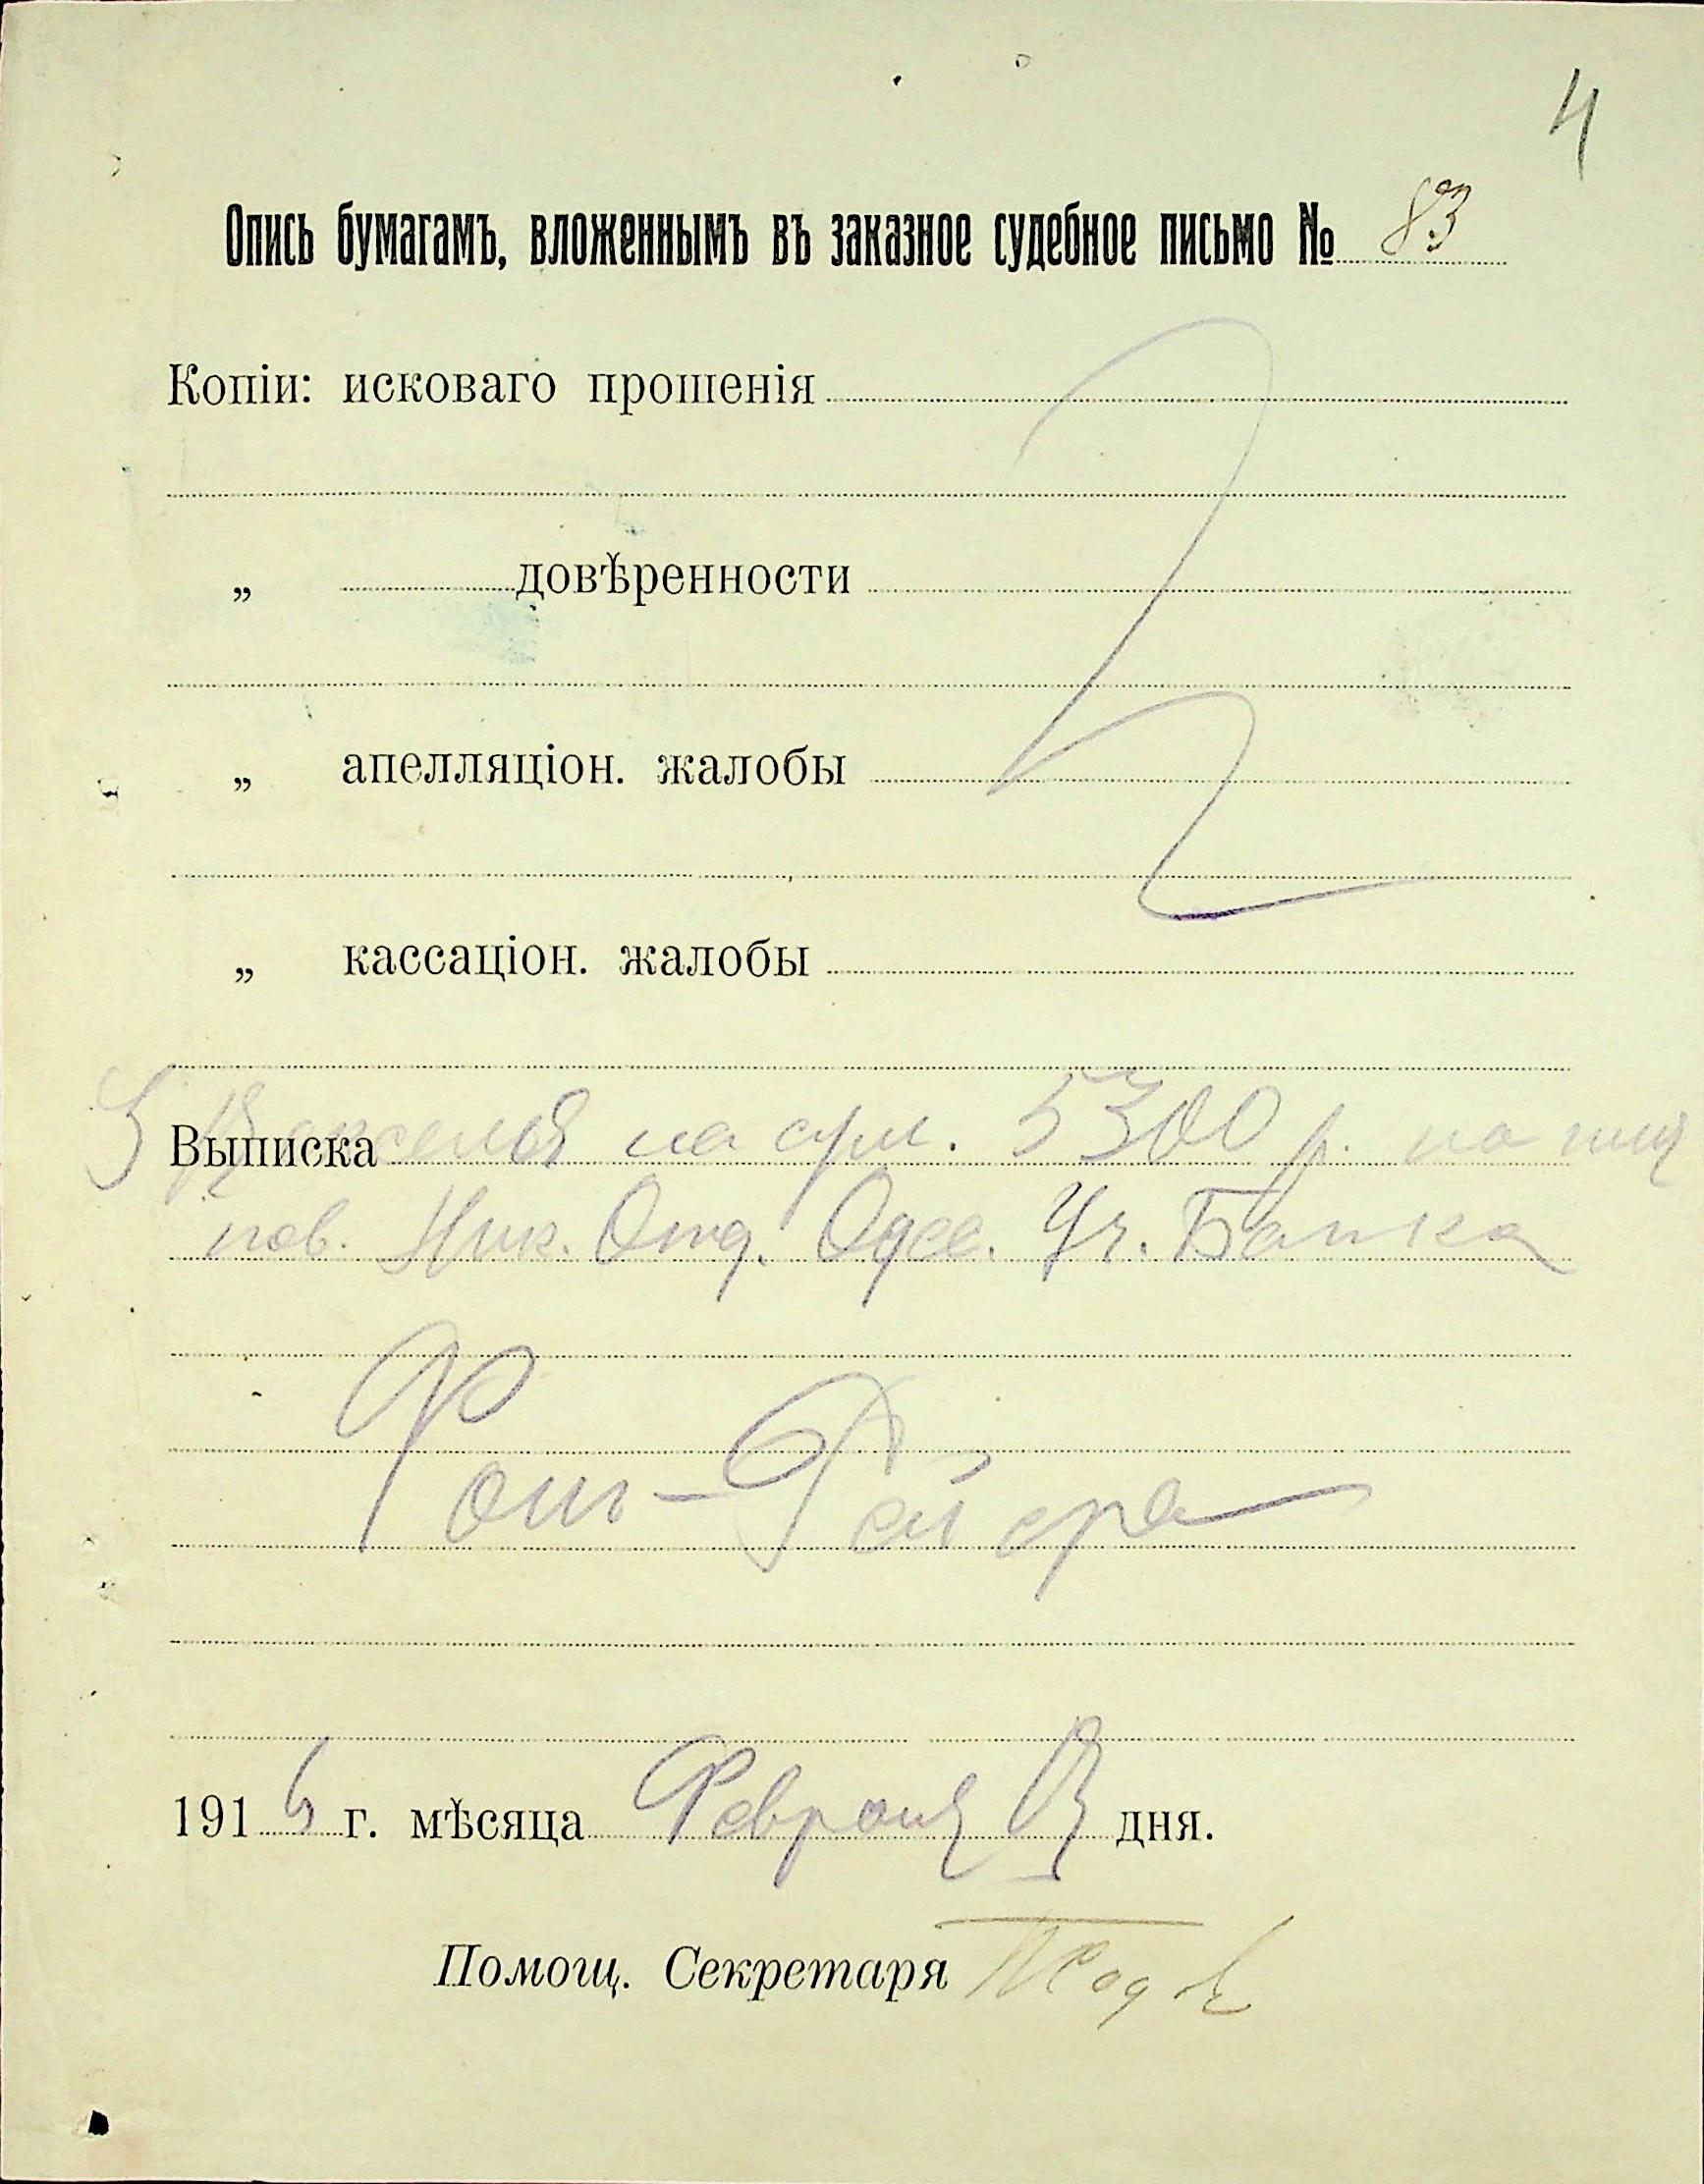 4
Опись бумагамъ, вложеннымъ въ заказное судебное письмо № 83
Копіи: исковаго прошенія
„ довѣренности
„ апелляціон. жалобы
„ кассаціон. жалобы
Выписка векселей на сум. 5300 р. по
Ник. Отд. Одес. Уч. Банка
1916 г. мѣсяца Февраля дня.
Помощ. Секретаря